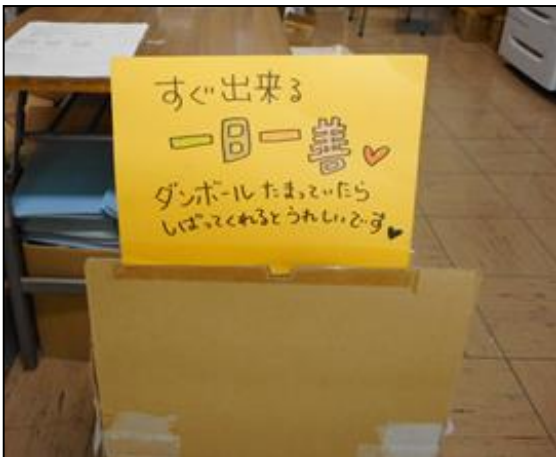 すぐ出来る
一日一善♥
ダンボールたまっていたら
しばってくれるとうれしいです♥